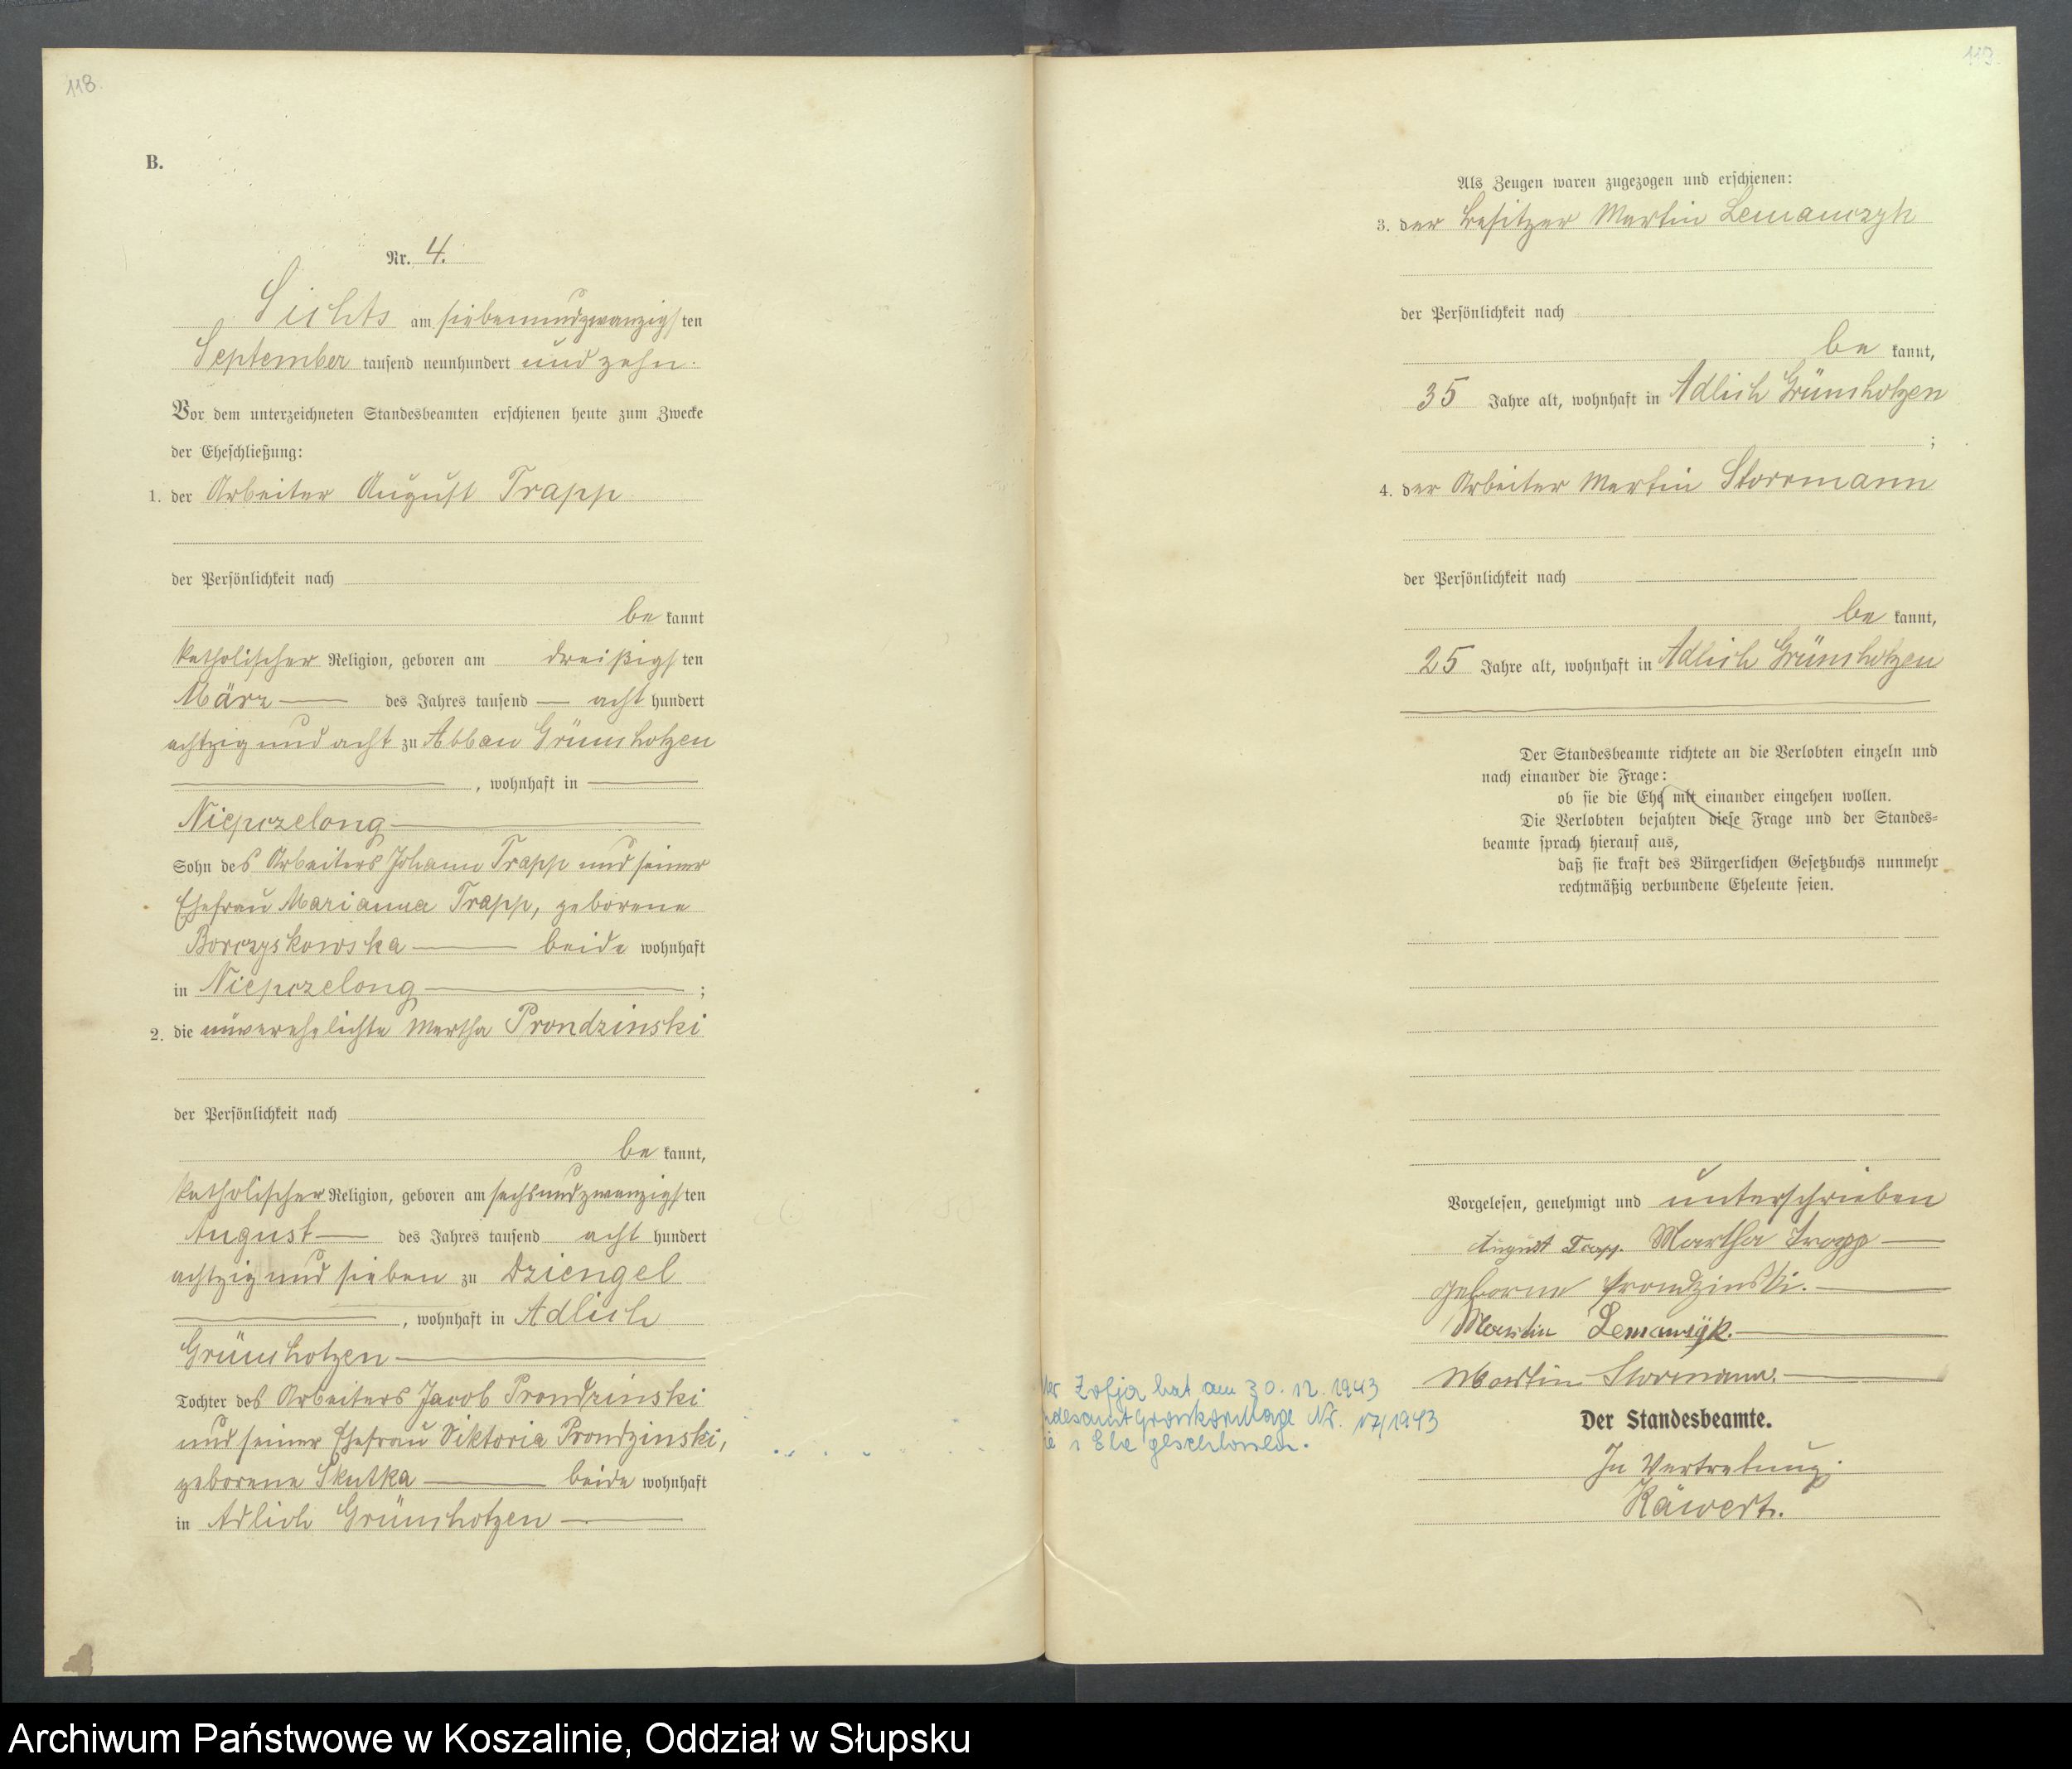 118.
B.
Nr. 4.
Lichts am siebenundzwanzigsten
September tausend neunhundert und zehn.
Vor dem unterzeichneten Standesbeamten erschienen heute zum Zwecke
der Eheschließung:
1. der Arbeiter August Trapp
der Persönlichkeit nach
be kannt
katholischer Religion, geboren am dreißigsten
März des Jahres tausend acht hundert
achtzig und acht zu Abbau Grünchotzen
, wohnhaft in
Niepczelong
Sohn des Arbeiters Johann Trapp und seiner
Ehefrau Marianna Trapp, geborene
Borczyskowska beide wohnhaft
in Niepczelong ;
2. die unverehelichte Martha Prondzinski
der Persönlichkeit nach
be kannt,
katholischer Religion, geboren am sechsundzwanzigsten
August des Jahres tausend acht hundert
achtzig und sieben zu Dziengel
, wohnhaft in Adlich
Grünchotzen
Tochter des Arbeiters Jacob Prondzinski
und seiner Ehefrau Viktoria Prondzinski,
geborene Skutka beide wohnhaft
in Adlich Grünchotzen
Als Zeugen waren zugezogen und erschienen:
3. der Besitzer Martin Lemanczyk
der Persönlichkeit nach
be kannt,
35 Jahre alt, wohnhaft in Adlich Grünchotzen
;
4. der Arbeiter Martin Storrmann
der Persönlichkeit nach
be kannt,
25 Jahre alt, wohnhaft in Adlich Grünchotzen
Der Standesbeamte richtete an die Verlobten einzeln und
nach einander die Frage:
ob sie die Ehe mit einander eingehen wollen.
Die Verlobten bejahten diese Frage und der Standes-
beamte sprach hierauf aus,
daß sie kraft des Bürgerlichen Gesetzbuchs nunmehr
rechtmäßig verbundene Eheleute seien.
Vorgelesen, genehmigt und unterschrieben
August Trapp. Martha Trapp
geborne Prondzinski.
Martin Lemanczyk.
Martin Storrmann.
Zofja hat am 30.12.1943
Nr. 17/1943
Ehe geschlossen.
Der Standesbeamte.
In Vertretung.
Käwert.
Archiwum Państwowe w Koszalinie, Oddział w Słupsku